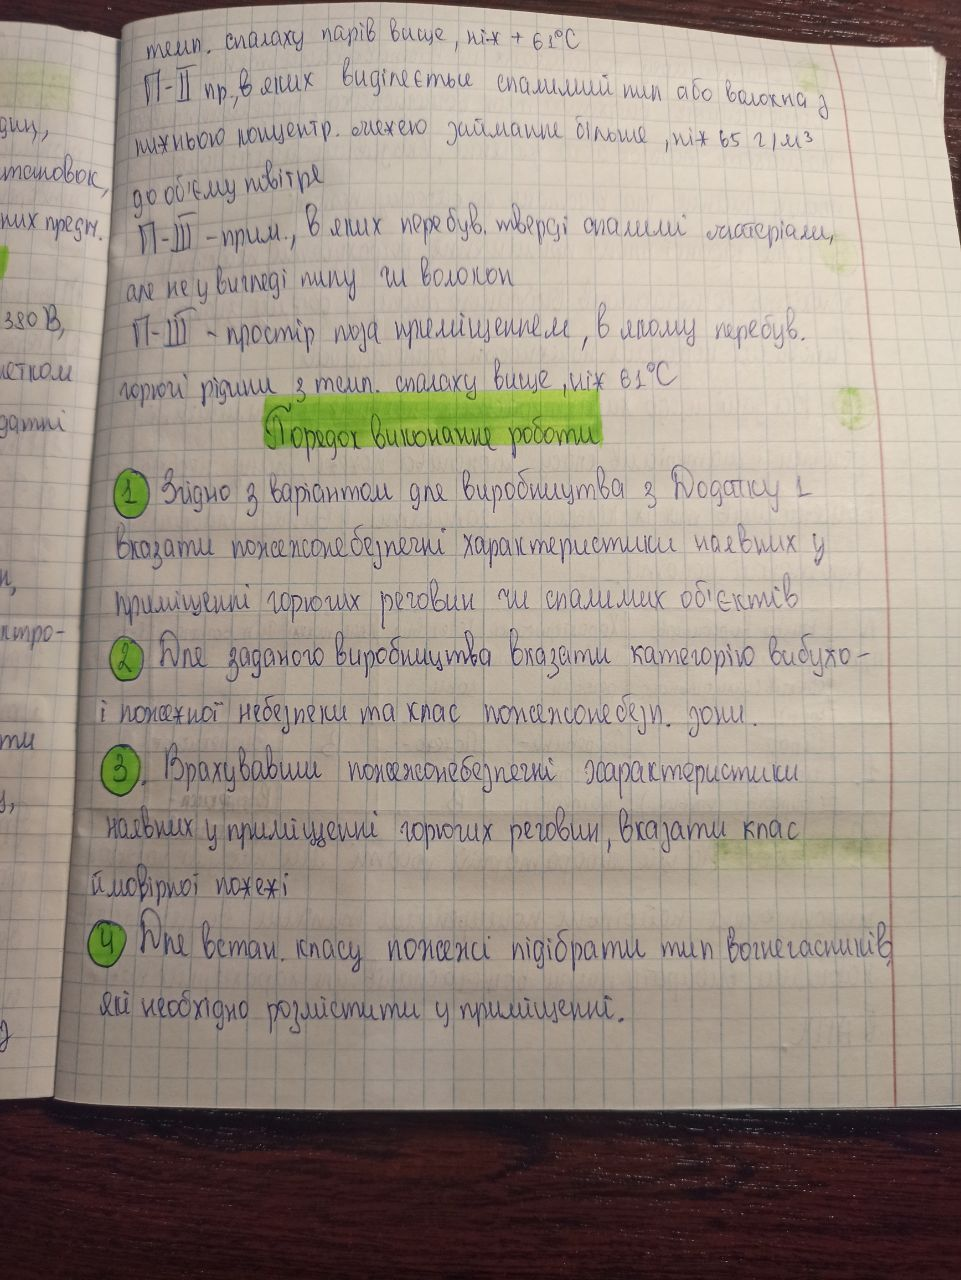 темп. спалаху парів вище, ніж + 61°С
П-ІІ пр., в яких виділяється спалимий пил або волокна з
нижньою концентр. межею займання більше, ніж 65 г/м³
до об'єму повітря
П-ІІІ - прим., в яких перебув. тверді спалимі матеріали,
але не у вигляді пилу чи волокон
П-ІІІ - простір поза приміщенням, в якому перебув.
горючі рідини з темп. спалаху вище, ніж 61°С
Порядок виконання роботи
1 Згідно з варіантом для виробництва з Додатку 1
вказати пожежонебезпечні характеристики наявних у
приміщенні горючих речовин чи спалимих об'єктів
2 Для заданого виробництва вказати категорію вибухо-
і пожежної небезпеки та клас пожежонебезп. зони.
3. Врахувавши пожежонебезпечні характеристики
наявних у приміщенні горючих речовин, вказати клас
ймовірної пожежі
4 Для встан. класу пожежі підібрати тип вогнегасників,
які необхідно розмістити у приміщенні.
тановок,
них предм.
380 В,
датні
ктро-